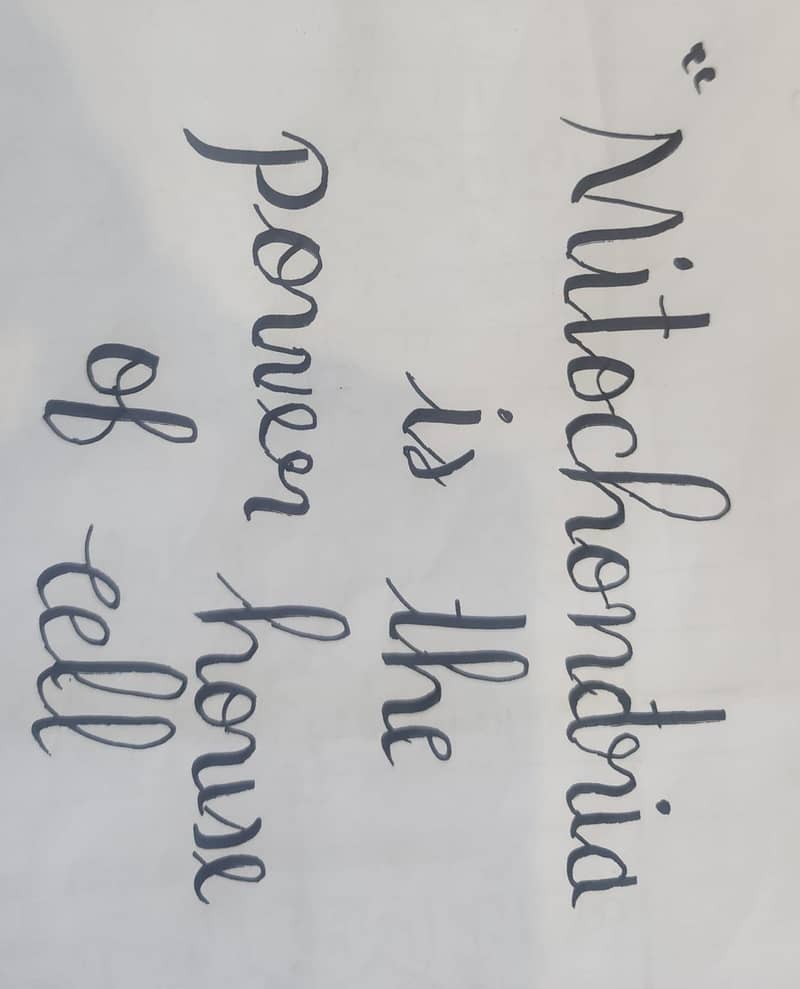 “ Mitochondria
is the
power house
of cell